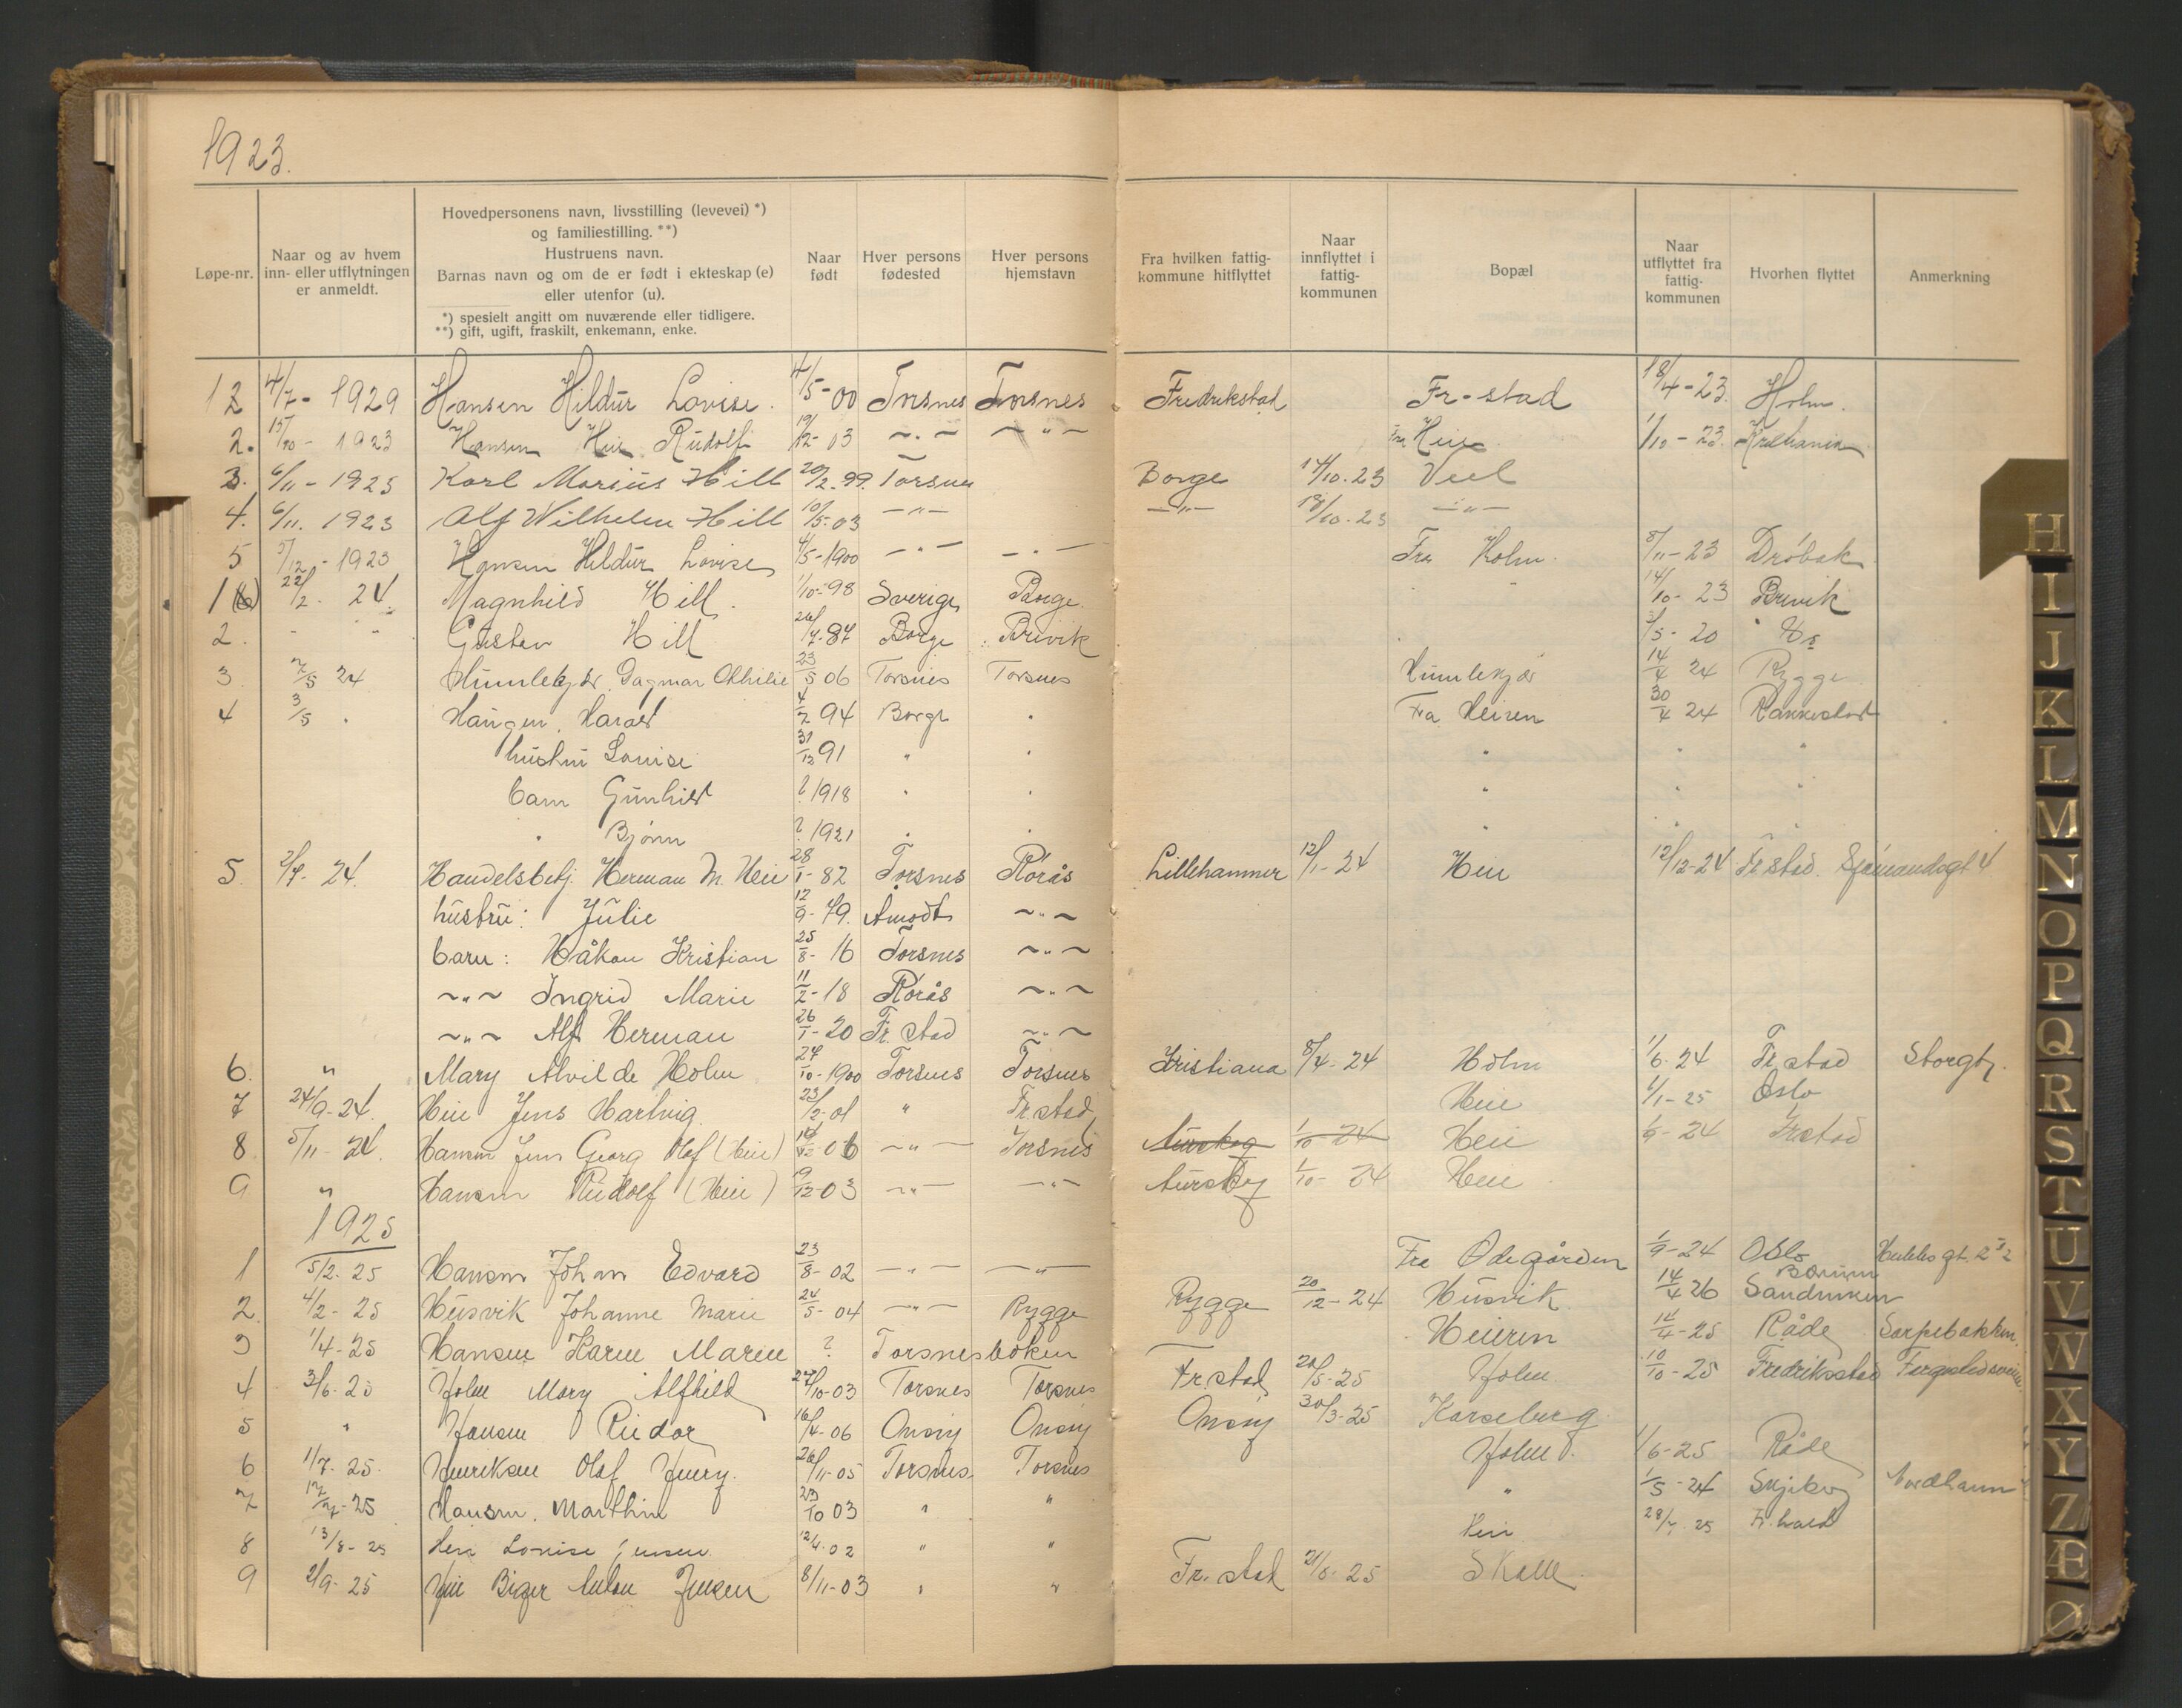 1923.
Løpe-nr. | Naar og av hvem inn- eller utflytningen er anmeldt. | Hovedpersonens navn, livsstilling (levevei) *) og familiestilling. **) Hustruens navn. Barnas navn og om de er født i ekteskap (e) eller utenfor (u). *) spesielt angitt om nuværende eller tidligere. **) gift, ugift, fraskilt, enkemann, enke. | Naar født | Hver persons fødested | Hver persons hjemstavn | Fra hvilken fattigkommune hitflyttet | Naar innflyttet i fattigkommunen | Bopæl | Naar utflyttet fra fattigkommunen | Hvorhen flyttet | Anmerkning
12 4/7- 1929 Hansen Hildur Lovise. 4/5-00 Torsnes Torsnes Fredrikstad Fr-stad 18/4-23. Holm.
2. 15/10- 1923 Hansen Heie Rudolf 19/12-03 -"- -"- Fra Heie 1/10-23. Kristiania
3. 6/11-1923 Karl Marius Hill 20/2.99. Torsnes Borge 14/10.23 Vel
4. 6/11. 1923 Alf Wilhelm Hill 10/5-03 -"- -"- 18/10.23 -"-
5 5/12-1923 Hansen Hildur Lovise 4/5-1900 -"- -"- Fra Holm. 8/11-23 Drøbak
1(6) 22/2. 24. Magnhild Hill. 1/10-98 Sverige Borge. " 14/10-23 Brevik
2. " " Gustav Hill 26/7-87 Borge Brevik /5-20 "
3. 2/5 24 Humlekjær. Dagmar Othilie 23/5 06 Torsnes Torsnes Humlekjær 14/4 24 Rygge
4 3/5 " Haugen. Harald 4/2 94 Borge " Fra Heien 30/4 24 Rakkestad
hustru Louise 31/12 91 " " " " "
barn Gunhild ? 1918 " " " " "
" Bjørn ? 1921 " " " " "
5. 2/4. 24. Handelsbetj. Herman M. Heie 28/1-82 Torsnes Rørås Lillehammer 12/1-24 Heie 12/12-24 Fr stad. Sjømandsgt 4
hustru: Julie 12/9-79. Amodt -"-
barn: Håkon Kristian 25/8-16 Torsnes -"-
-"- Ingrid Marie 11/2-18 Rørås -"-
-"- Alf Herman 26/1-20 Fr. stad -"-
6. " Mary Alvilde Holm 24/10-1900 Torsnes Torsnes Kristiana 8/4-24 Holm 1/6-24 Fr. stad Storgt.
7 24/9-24. Heie Jens Hartvig. 23/2-01 " Fr. stad Heie 1/1-25 Oslo
8 5/11-24. Hansen Jens Georg Olaf (Heie) /12-06 -"- Torsnes Aurskog 1/10-24 Heie 1/9-24 Frstad
9 " Hansen Rudolf (Heie) 19/12-03 -"- -"- Aurskog 1/10-24 Heie
1925
1 5/2-25 Hansen Johan Edvard 23/8-02 -"- -"- Fra Ødegården 1/9-24 Oslo
2. 4/2-25 Husvik Johanne Marie 24/5-04 -"- Rygge Rygge 20/12-24 Husvik. 14/4 26 Bærum Sandviken
3 1/4-25 Hansen Karen Maren ? Torsnesboken Heieren 14/4-25 Råde Sarpebakken.
4 3/6-25 Holm Mary Alfhild 27/10-03 Torsnes Torsnes Fr. stad 20/5-25 Holm. 10/10-25 Fredriksstad
5 " Hansen Reidar 16/4-06 Onsøy Onsøy Onsøy 30/3-25 Karseberg
6 1/7-25. Henriksen Olaf Henry. 26/11-05 Torsnes Torsnes Holm. 1/6-25 Råde
7 17/7-25 Hansen. Marthin 23/10 03 " " " 1/5-24 Skjeberg
8 13/8-25 Heie Louise Jensen 12/4.02 " " Heie 28/7. 25 Fr. hald
9 2/9-25 Heie Birger Anton Jensen 8/11-03 " " Fr. stad 21/8-25 Skalle.
H
I
J
K
L
M
N
O
P
Q
R
S
T
U
V
W
X
Y
Z
Æ
Ø